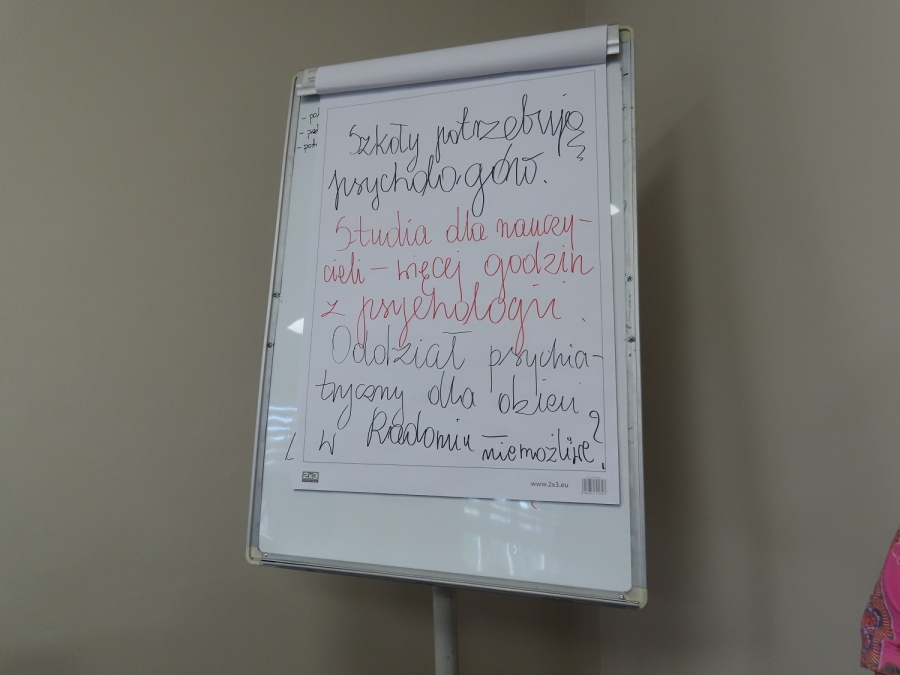 - pot
Szkoły potrzebują
psychologów.
Studia dla nauczy-
cieli - więcej godzin
z psychologii.
Oddział psychia-
tryczny dla dzieci
w Radomiu - niemożliwe?
2x3
www.2x3.eu